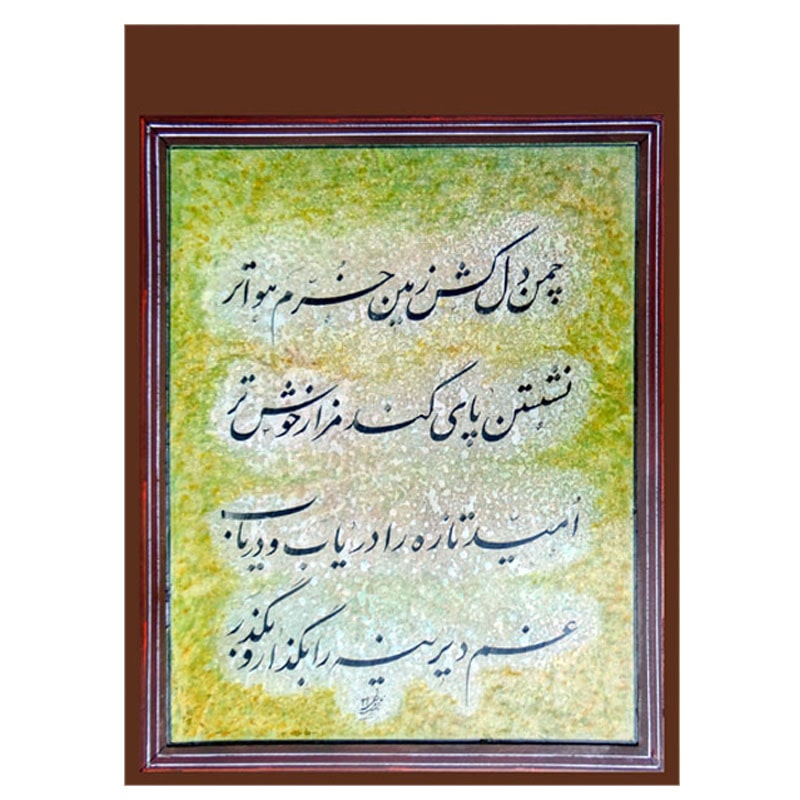 چمن دل کش زمین خرم هوا تر
نشستن پای گندمزار خوش تر
امید تازه را دریاب و دریاب
غم دیرینه را بگذار و بگذر